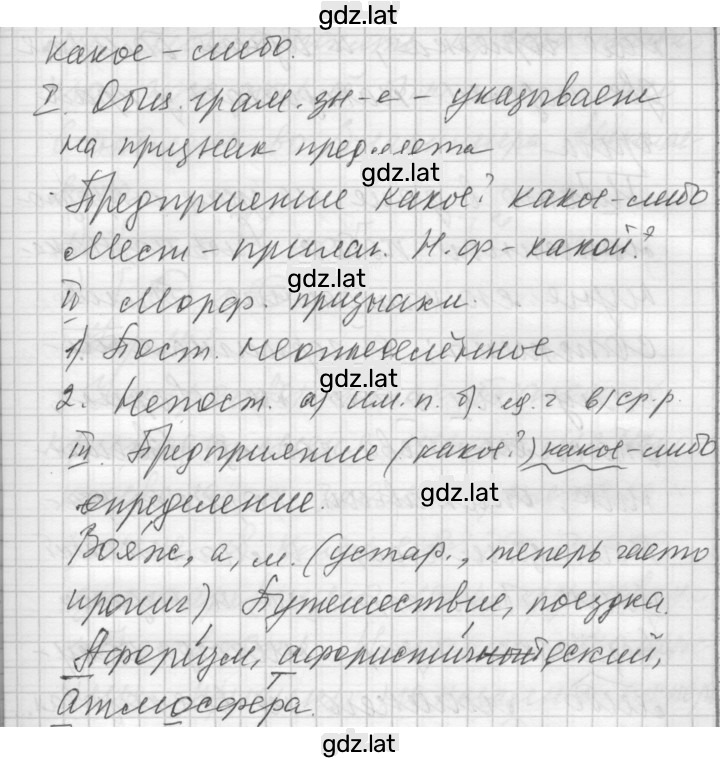 gdz.lat
какое-либо.
I. Общ. грам. зн-е - указывает
на признак предмета
gdz.lat
Предприятие какое? какое-либо
Мест - прилаг. Н.ф - какой?
gdz.lat
II Морф. признаки.
1) Пост. неопределённое
gdz.lat
2. Непост. а) им.п. б). ед.ч в) ср.р.
III. Предприятие (какое?) какое-либо
определение.
gdz.lat
Вояж, а, м. (устар., теперь часто
иронич) Путешествие, поездка.
Афоризм, афористический,
атмосфера.
gdz.lat